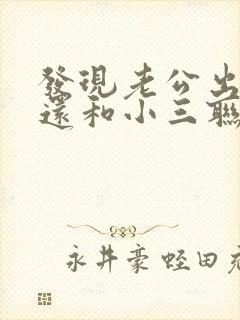 發現老公出
還和小三聯
永井豪 蛭田充